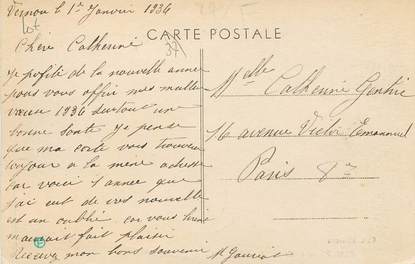 Vernon le 1er Janvier 1936
lot
CARTE POSTALE
39
Chère Catherine
je profite de la nouvelle année
pour vous offrir mes meilleurs
vœux 1936 surtout un
bonne santé Je pense
que ma carte vous trouvera
toujour a la même adresse
car voici 1 année que
j'ai eut de vos nouvelle
est un oublie car vous lire
m'aurait fait plaisir
Recevez mon bons souvenir
Melle Catherine Gentric
76 avenue Victor Emmanuel
Paris 8me